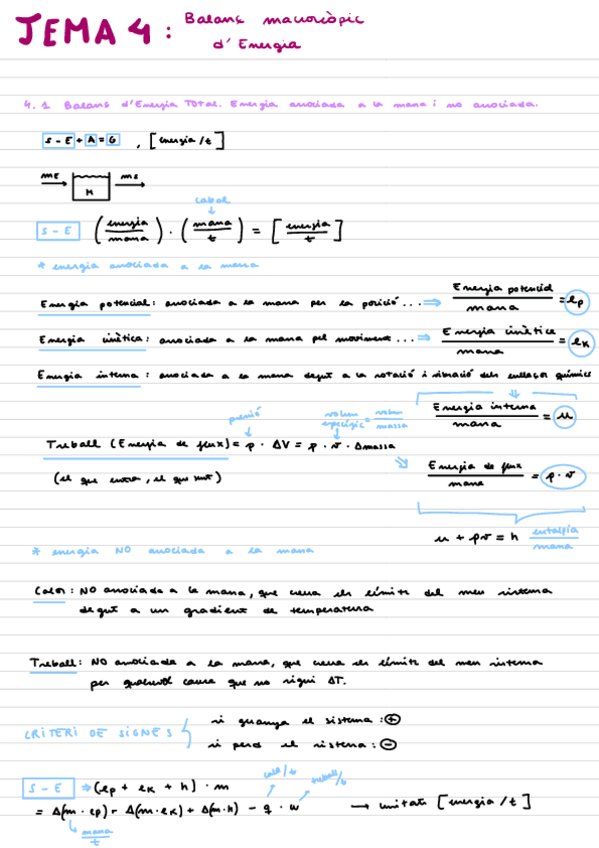 TEMA 4: Balanç macroscòpic
d'Energia
4.1 Balanç d'Energia Total. Energia associada a la massa i no associada.
S - E + A = G , [energia/t]
mE mS
M
cabal
S - E (energia/massa) · (massa/t) = [energia/t]
* energia associada a la massa
Energia potencial: associada a la massa per la posició... ⇒ Energia potencial/massa = ep
Energia cinètica: associada a la massa pel moviment... ⇒ Energia cinètica/massa = eK
Energia interna: associada a la massa degut a la rotació i vibració dels enllaços químics
Energia interna/massa = u
pressió volum específic = volum/massa
Treball (Energia de flux) = p · ΔV = p · v · Δmassa
(el que entra, el que surt)
Energia de flux/massa = p · v
u + pv = h entalpia/massa
* energia NO associada a la massa
Calor: NO associada a la massa, que creua els límits del meu sistema
degut a un gradient de temperatura
Treball: NO associada a la massa, que creua els límits del meu sistema
per qualsevol causa que no sigui ΔT.
CRITERI DE SIGNES { si guanya el sistema: +
si perd el sistema: -
calor/t treball/t
S - E ⇒ (ep + eK + h) · m
= Δ(m · ep) + Δ(m · eK) + Δ(m · h) - q · w → unitats [energia/t]
massa/t